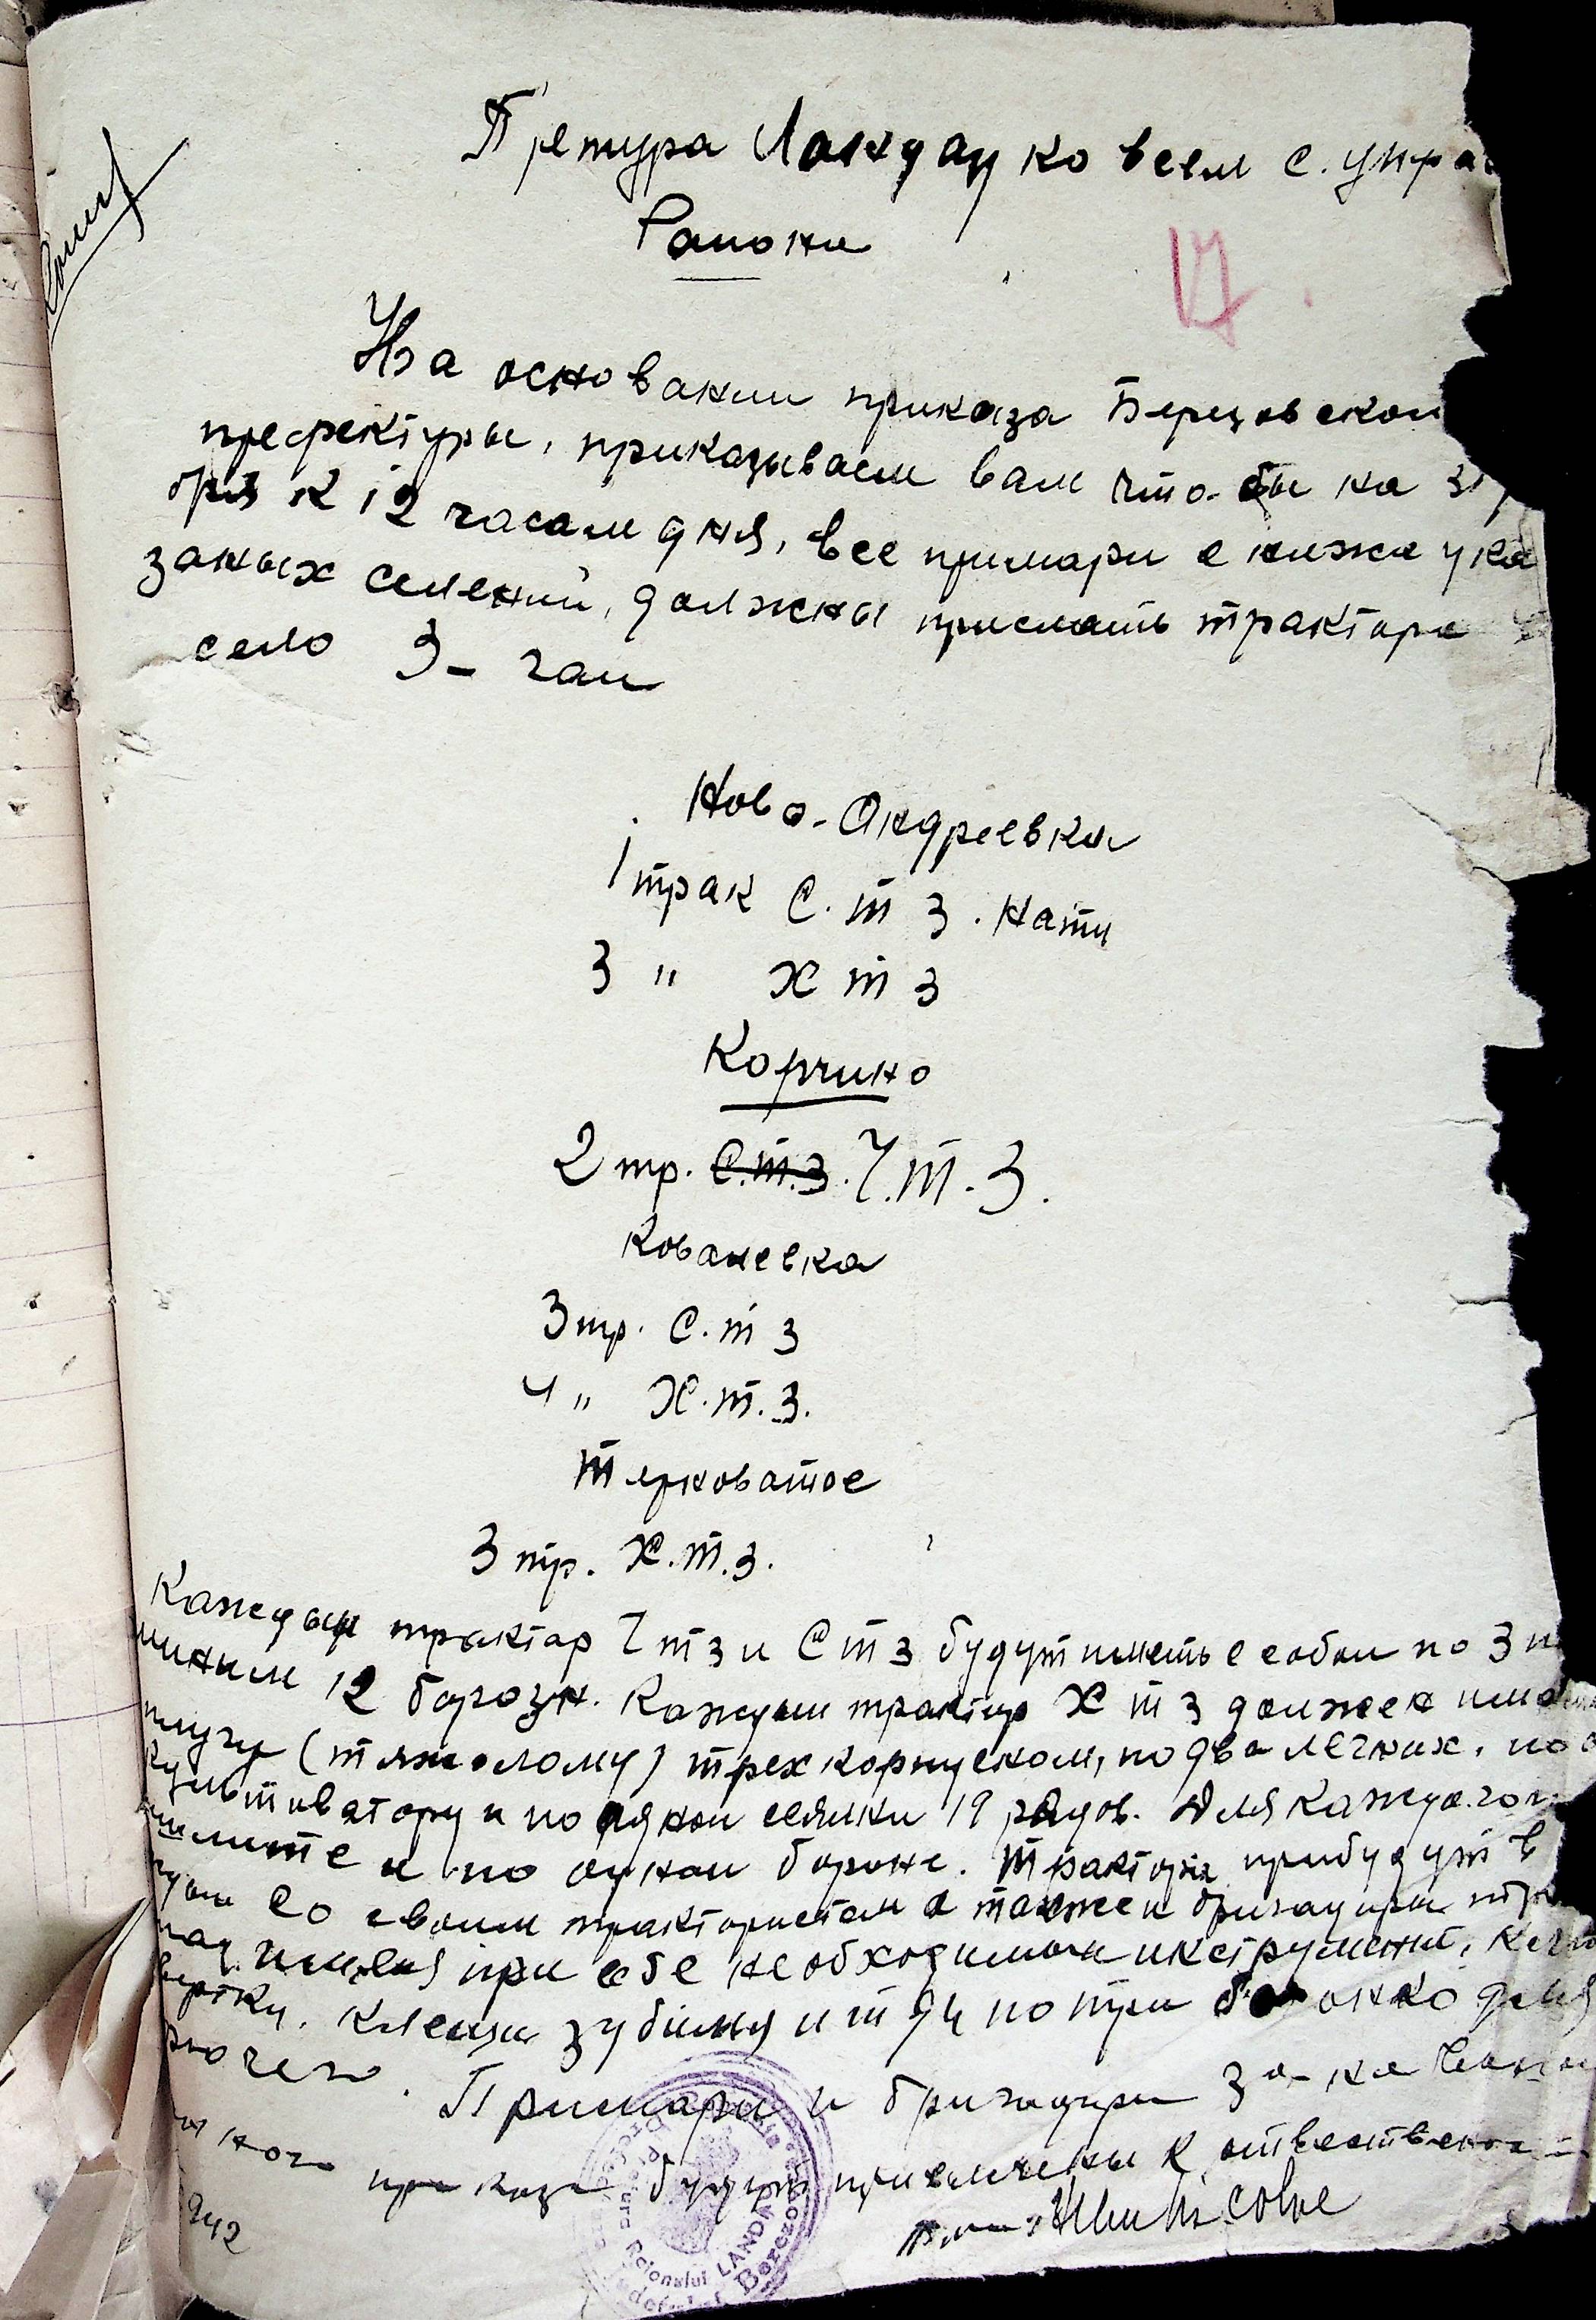 Претура Ландау ко всем с. упра
Раиона
17
На основании приказа Березовскои
префектуры, приказываем вам что-бы на
бря к 12 часам дня, все примари с ниже ука
заных селений, должны прислать трактора
село Э-гаи
Ново-Андреевка
1 трак С.т з. Нати
3 " Х т з
Корчино
2 тр. С.т.з. Ч.т.З.
Кованевка
3 тр. С.т з
4 " Х.т.з.
Терноватое
3 тр. Х.т.з.
Каждыи трактор Ч т з и С т з будут иметь с собои по 3
12 борозн. Каждыи трактор Х т з должен
плугу (тяжолому) трех корпусном, по два легких, по
культиватору и по однои сеялки 19 рядов. Для каждого
и по однои бороне. Трактора прибудут в
со своим трактористам а также и бригадиры
имея при себе необходимыи инструмент,
клещи зубила и т д и по три для
Примари и бригадиры за не
ного приказа будут привлечены к ответствено
1942
Pretura Raionului LANDAU
Berezovca